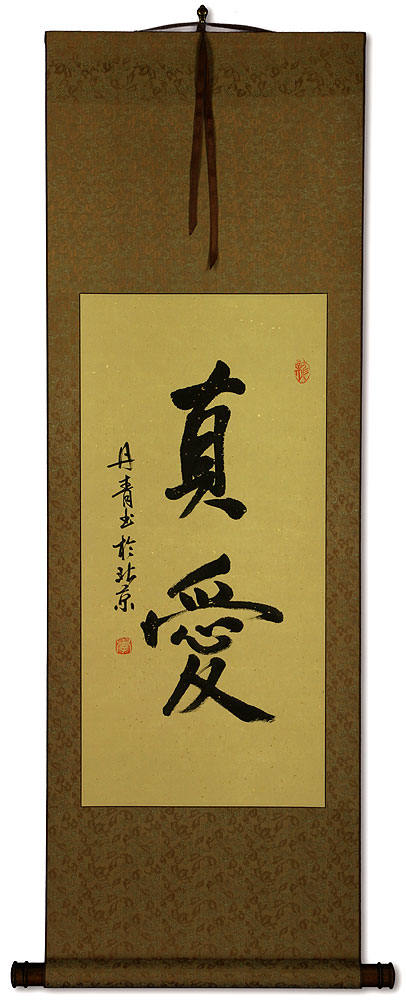 真愛
丹青书於北京